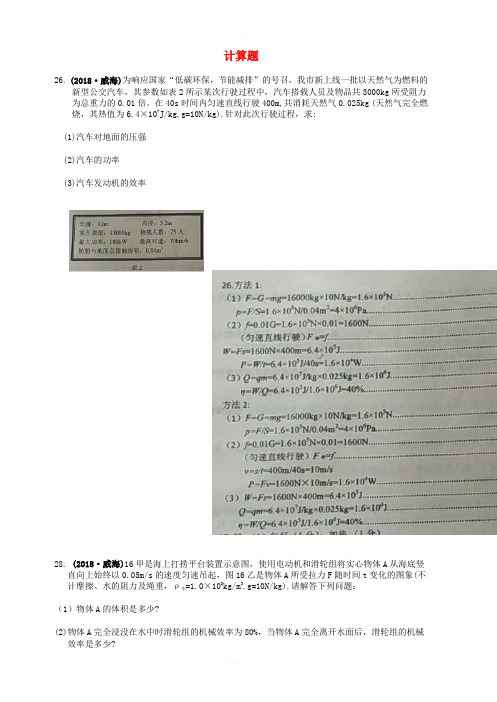 计算题
26. (2018·威海)为响应国家“低碳环保，节能减排”的号召，我市新上线一批以天然气为燃料的
新型公交汽车，其参数如表2所示某次行驶过程中，汽车搭载人员及物品共3000kg所受阻力
为总重力的0.01倍。在40s时间内匀速直线行驶400m,共消耗天然气0.025kg(天然气完全燃
烧，其热值为6.4×10⁷J/kg,g=10N/kg).针对此次行驶过程，求:
(1)汽车对地面的压强
(2)汽车的功率
(3)汽车发动机的效率
长度：12m 高度：3.2m
客车质量：13000kg 核载人数：75人
最大功率：180kW 最高时速：70km/h
轮胎与地面总接触面积：0.04m²
表2
26.方法1:
(1) F=G=mg=16000kg×10N/kg=1.6×10⁵N
p=F/S=1.6×10⁵N/0.04m²=4×10⁶Pa
(2) f=0.01G=1.6×10⁵N×0.01=1600N
(匀速直线行驶) F牵=f
W=Fs=1600N×400m=6.4×10⁵J
P=W/t=6.4×10⁵J/40s=1.6×10⁴W
(3) Q=qm=6.4×10⁷J/kg×0.025kg=1.6×10⁶J
η=W/Q=6.4×10⁵J/1.6×10⁶J=40%
方法2:
(1) F=G=mg=16000kg×10N/kg=1.6×10⁵N
p=F/S=1.6×10⁵N/0.04m²=4×10⁶Pa
(2) f=0.01G=1.6×10⁵N×0.01=1600N
(匀速直线行驶) F牵=f
v=s/t=400m/40s=10m/s
P=Fv=1600N×10m/s=1.6×10⁴W
(3) W=Fs=1600N×400m=6.4×10⁵J
Q=qm=6.4×10⁷J/kg×0.025kg=1.6×10⁶J
η=W/Q=6.4×10⁵J/1.6×10⁶J=40%
28. (2018·威海)16甲是海上打捞平台装置示意图，使用电动机和滑轮组将实心物体A从海底竖
直向上始终以0.05m/s的速度匀速吊起，图16乙是物体A所受拉力F随时间t变化的图象(不
计摩擦、水的阻力及绳重，ρ水=1.0×10³kg/m³.g=10N/kg).请解答下列问题：
(1)物体A的体积是多少?
(2)物体A完全浸没在水中时滑轮组的机械效率为80%，当物体A完全离开水面后，滑轮组的机械
效率是多少?